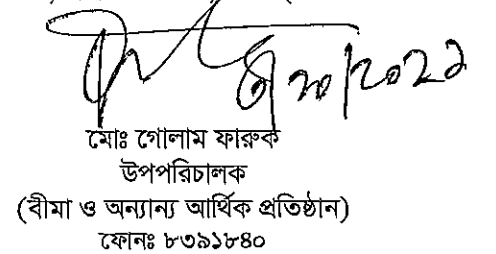 ৩/১০/২০২১
মোঃ গোলাম ফারুক
উপপরিচালক
(বীমা ও অন্যান্য আর্থিক প্রতিষ্ঠান)
ফোনঃ ৮৩৯১৮৪০